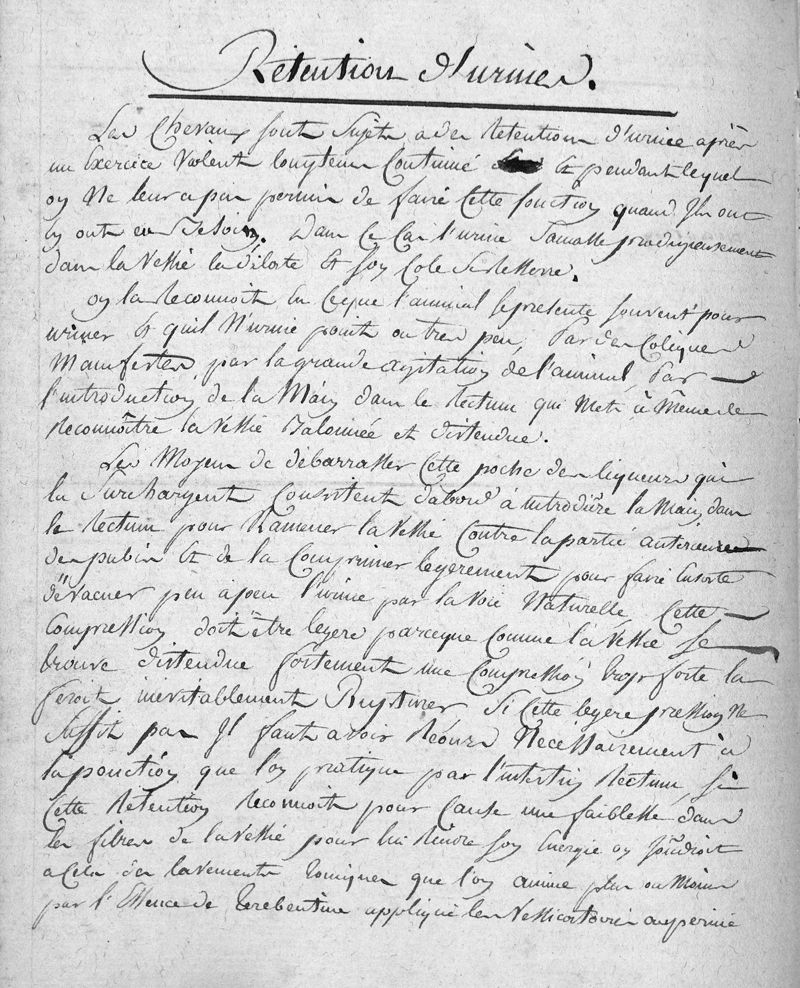 Rétention d'urines.
Les Chevaux sont Sujets a des Retentions d'urine après
un Exercice Violent longtems Continué & pendant lequel
on Ne leur a pas permis de faire Cette fonction quand Ils ont
en Besoin. Dans Ce Cas l'urine Samasse prodigieusement
dans la Vessie la dilate & son Cole Se resserre.
on la Reconnoit En Ceque l'animal Se presente souvent pour
uriner & quil N'urine point ou tres peu, Par des Coliques
Manifestes, par la grande agitation de l'animal, Par
l'introduction de la Main dans le Rectum qui Met à Même de
Reconnoître la Vessie Balonnée et distendue.
Les Moyens de débarrasser Cette poche des liqueurs qui
la Surchargent Consistent d'abord a introduire la Main dans
le Rectum pour Ramener la Vessie Contre la partie anterieure
des pubis & de la Comprimer legerement pour faire Ensorte
d'évacuer peu apeu l'urine par la Voie Naturelle, Cette
Compression doit être legere parceque Comme la Vessie se
trouve distendue fortement une Compression trop forte la
feroit inévitablement Rupturer Si Cette legere pression Ne
Suffit pas Il faut avoir Recours Necessairement à
la ponction que l'on pratique par l'intestin Rectum, si
Cette Retention Reconnoit pour Cause une faiblesse dans
les fibres de la Vessie pour lui Rendre son Energie on joindroit
a Cela des lavements toniques que l'on anime plus ou Moins
par l'Essence de Terebentine appliqué les Vessicatoires au perinée